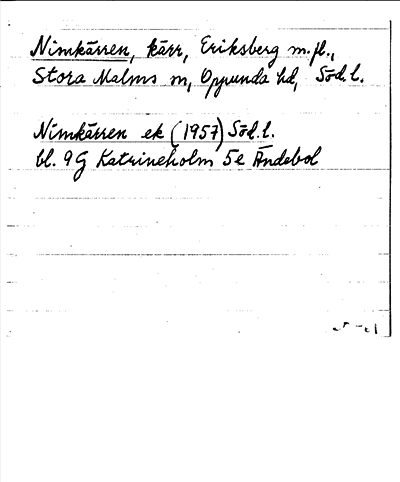 Nimkärren, kärr, Eriksberg m.fl.,
Stora Malms sn, Oppunda hd, Söd.l.
Nimkärren ek (1957) Söd.l.
bl. 9G Katrineholm 5e Ändebol